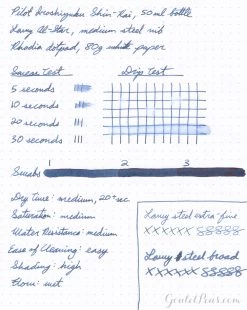 Pilot Iroshizuku Shin-Kai, 50ml bottle
Lamy Al-Star, medium steel nib
Rhodia dotpad, 80g white paper
Smear Test
Drip Test
5 seconds
10 seconds
20 seconds
30 seconds
Swabs
1
2
3
Dry Time: medium, 20+sec.
Saturation: medium
Water Resistance: medium
Ease of Cleaning: easy
Shading: high
Flow: wet
Lamy steel extra-fine
xxxxxx 88888888
Lamy steel broad
xxxxxxx 8888888
GouletPens.com